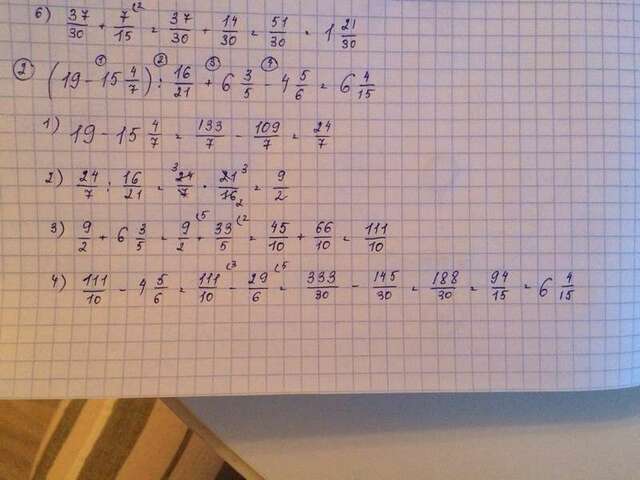 6) 37/30 + 7/15 (2 = 37/30 + 14/30 = 51/30 = 1 21/30
② (19 -① 15 4/7) :② 16/21 +③ 6 3/5 -④ 4 5/6 = 6 4/15
1) 19 - 15 4/7 = 133/7 - 109/7 = 24/7
2) 24/7 : 16/21 = ³24/7 · 21³/16₂ = 9/2
3) 9/2 + 6 3/5 = 9/2 (5 + 33/5 (2 = 45/10 + 66/10 = 111/10
4) 111/10 - 4 5/6 = 111/10 (3 - 29/6 (5 = 333/30 - 145/30 = 188/30 = 94/15 = 6 4/15